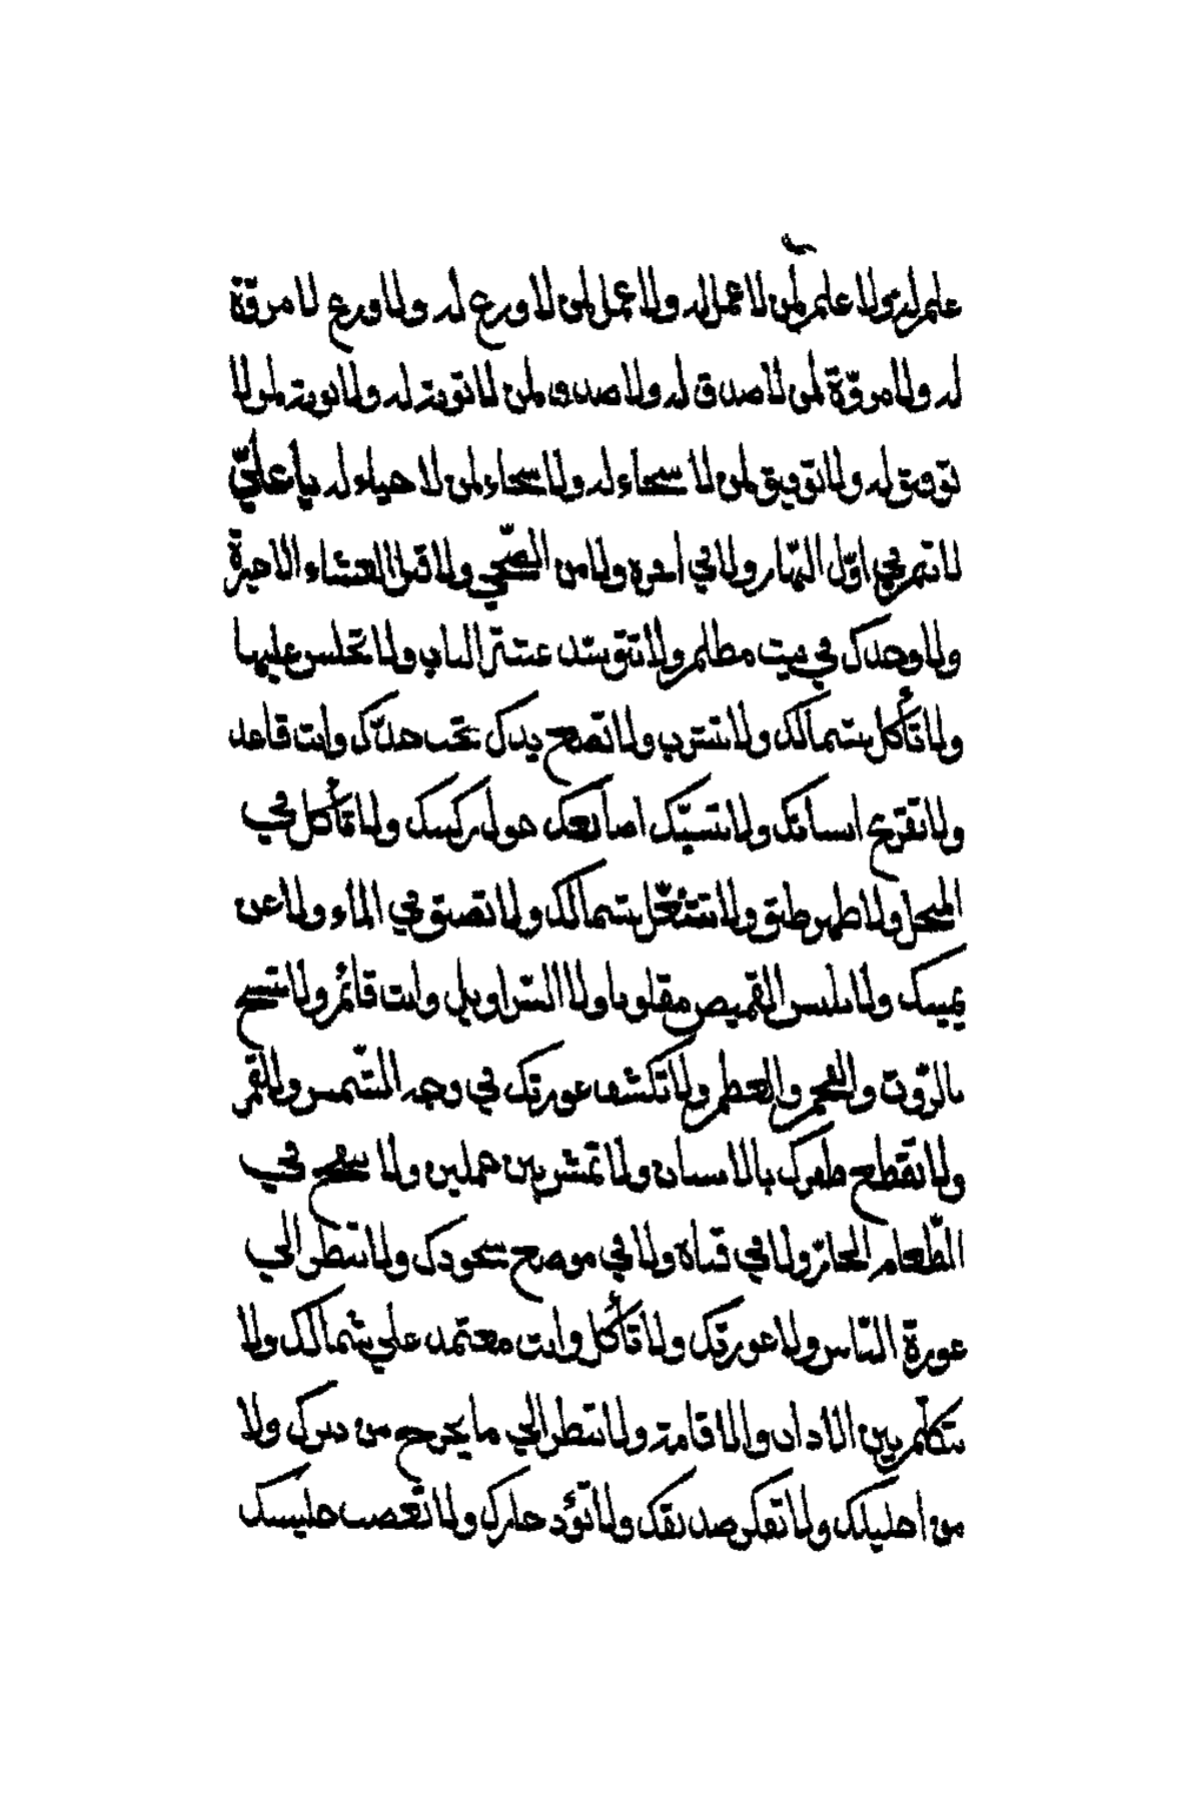 علم له ولا علم لمن لا عمل له ولا عمل لمن لا ورع له ولا ورع لا مروّة
له ولا مروّة لمن لا صدق له ولا صدق لمن لا توبة له ولا توبة لمن لا
توفيق له ولا توفيق لمن لا سخاء له ولا سخاء لمن لا حياء له يا علي
لا تنم في اوّل النهار ولا في اخره ولا من الضّحي ولا قبل العشاء الاخيرة
ولا وحدك في بيت مظلم ولا تتوسّد عتبة الباب ولا تجلس عليها
ولا تأكل بشمالك ولا تشرب ولا تضع يدك تحت خدّك وانت قاعد
ولا تقرع اسنانك ولا تشبّك اصابعك حول ركبتيك ولا تأكل في
المنخل ولا ظهر طبق ولا تتنعّل بشمالك ولا تبصق في الماء ولا عن
يمينك ولا تلبس القميص مقلوبا ولا السّراويل وانت قائم ولا تتمسح
بالرّوث والفحم والعظم ولا تكشف عورتك في وجه الشّمس والقمر
ولا تقطع ظفرك بالاسنان ولا تمش بين جملين ولا تنفخ في
الطّعام الحارّ ولا في قباة ولا في موضع سجودك ولا تنظر الي
عورة النّاس ولا عورتك ولا تأكل وانت معتمد علي شمالك ولا
تتكلّم بين الاذان والاقامة ولا تنظر الي ما يخرج من دبرك ولا
من احليلك ولا صديقك ولا تؤذ جارك ولا تغضب جليسك